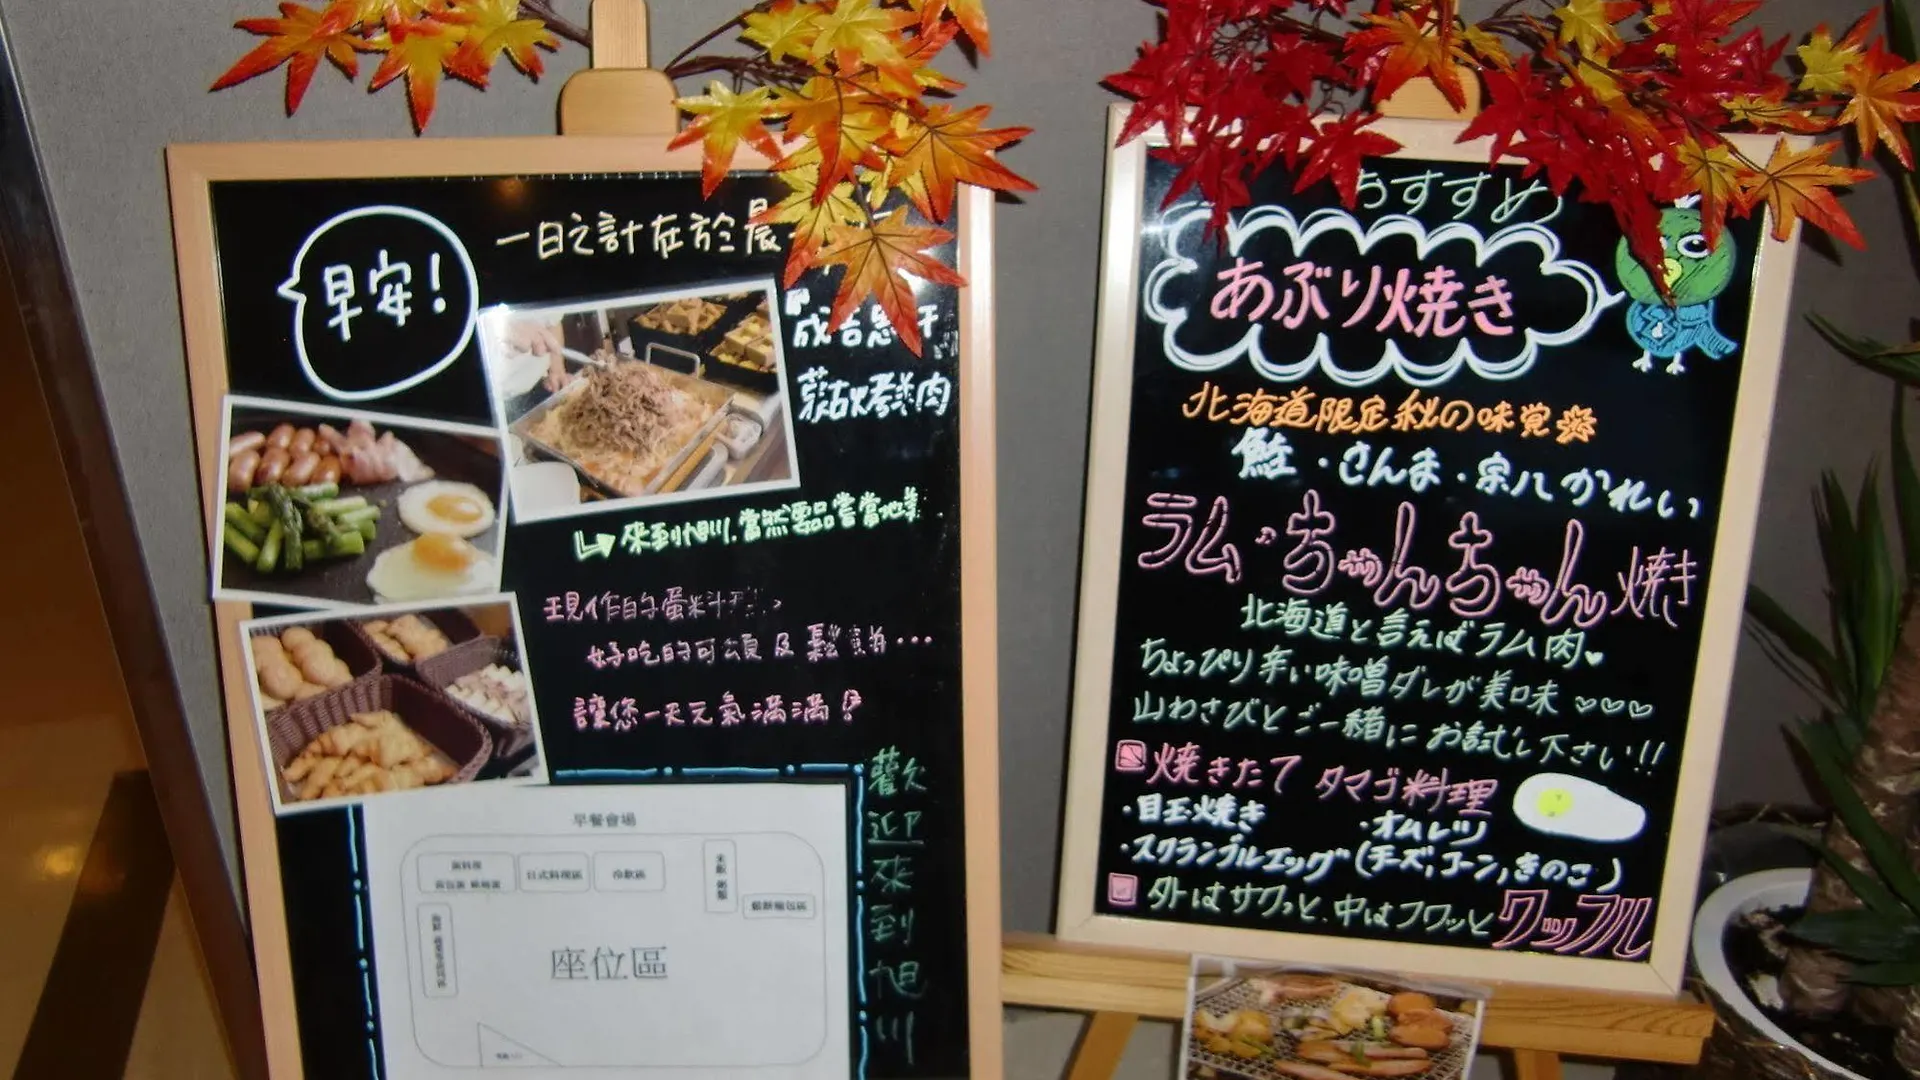 早安!
一日之計在於晨
成吉思汗
蒙古烤羊肉
來到旭川,當然要品嘗當地美
現作的蛋料理、
好吃的可頌及鬆餅…
讓您一天元氣滿滿!
歡迎來到旭川
早餐會場
日式料理區
冷飲區
座位區
おすすめ
あぶり焼き
北海道限定秘の味覚
鮭・さんま・宗八かれい
ラム♪ちゃんちゃん焼き
北海道と言えばラム肉♥
ちょっぴり辛い味噌ダレが美味♡♡♡
山わさびとご一緒にお試し下さい!!
焼きたてタマゴ料理
・目玉焼き ・オムレツ
・スクランブルエッグ(チーズ,コーン,きのこ)
外はサクっと、中はフワッとワッフル